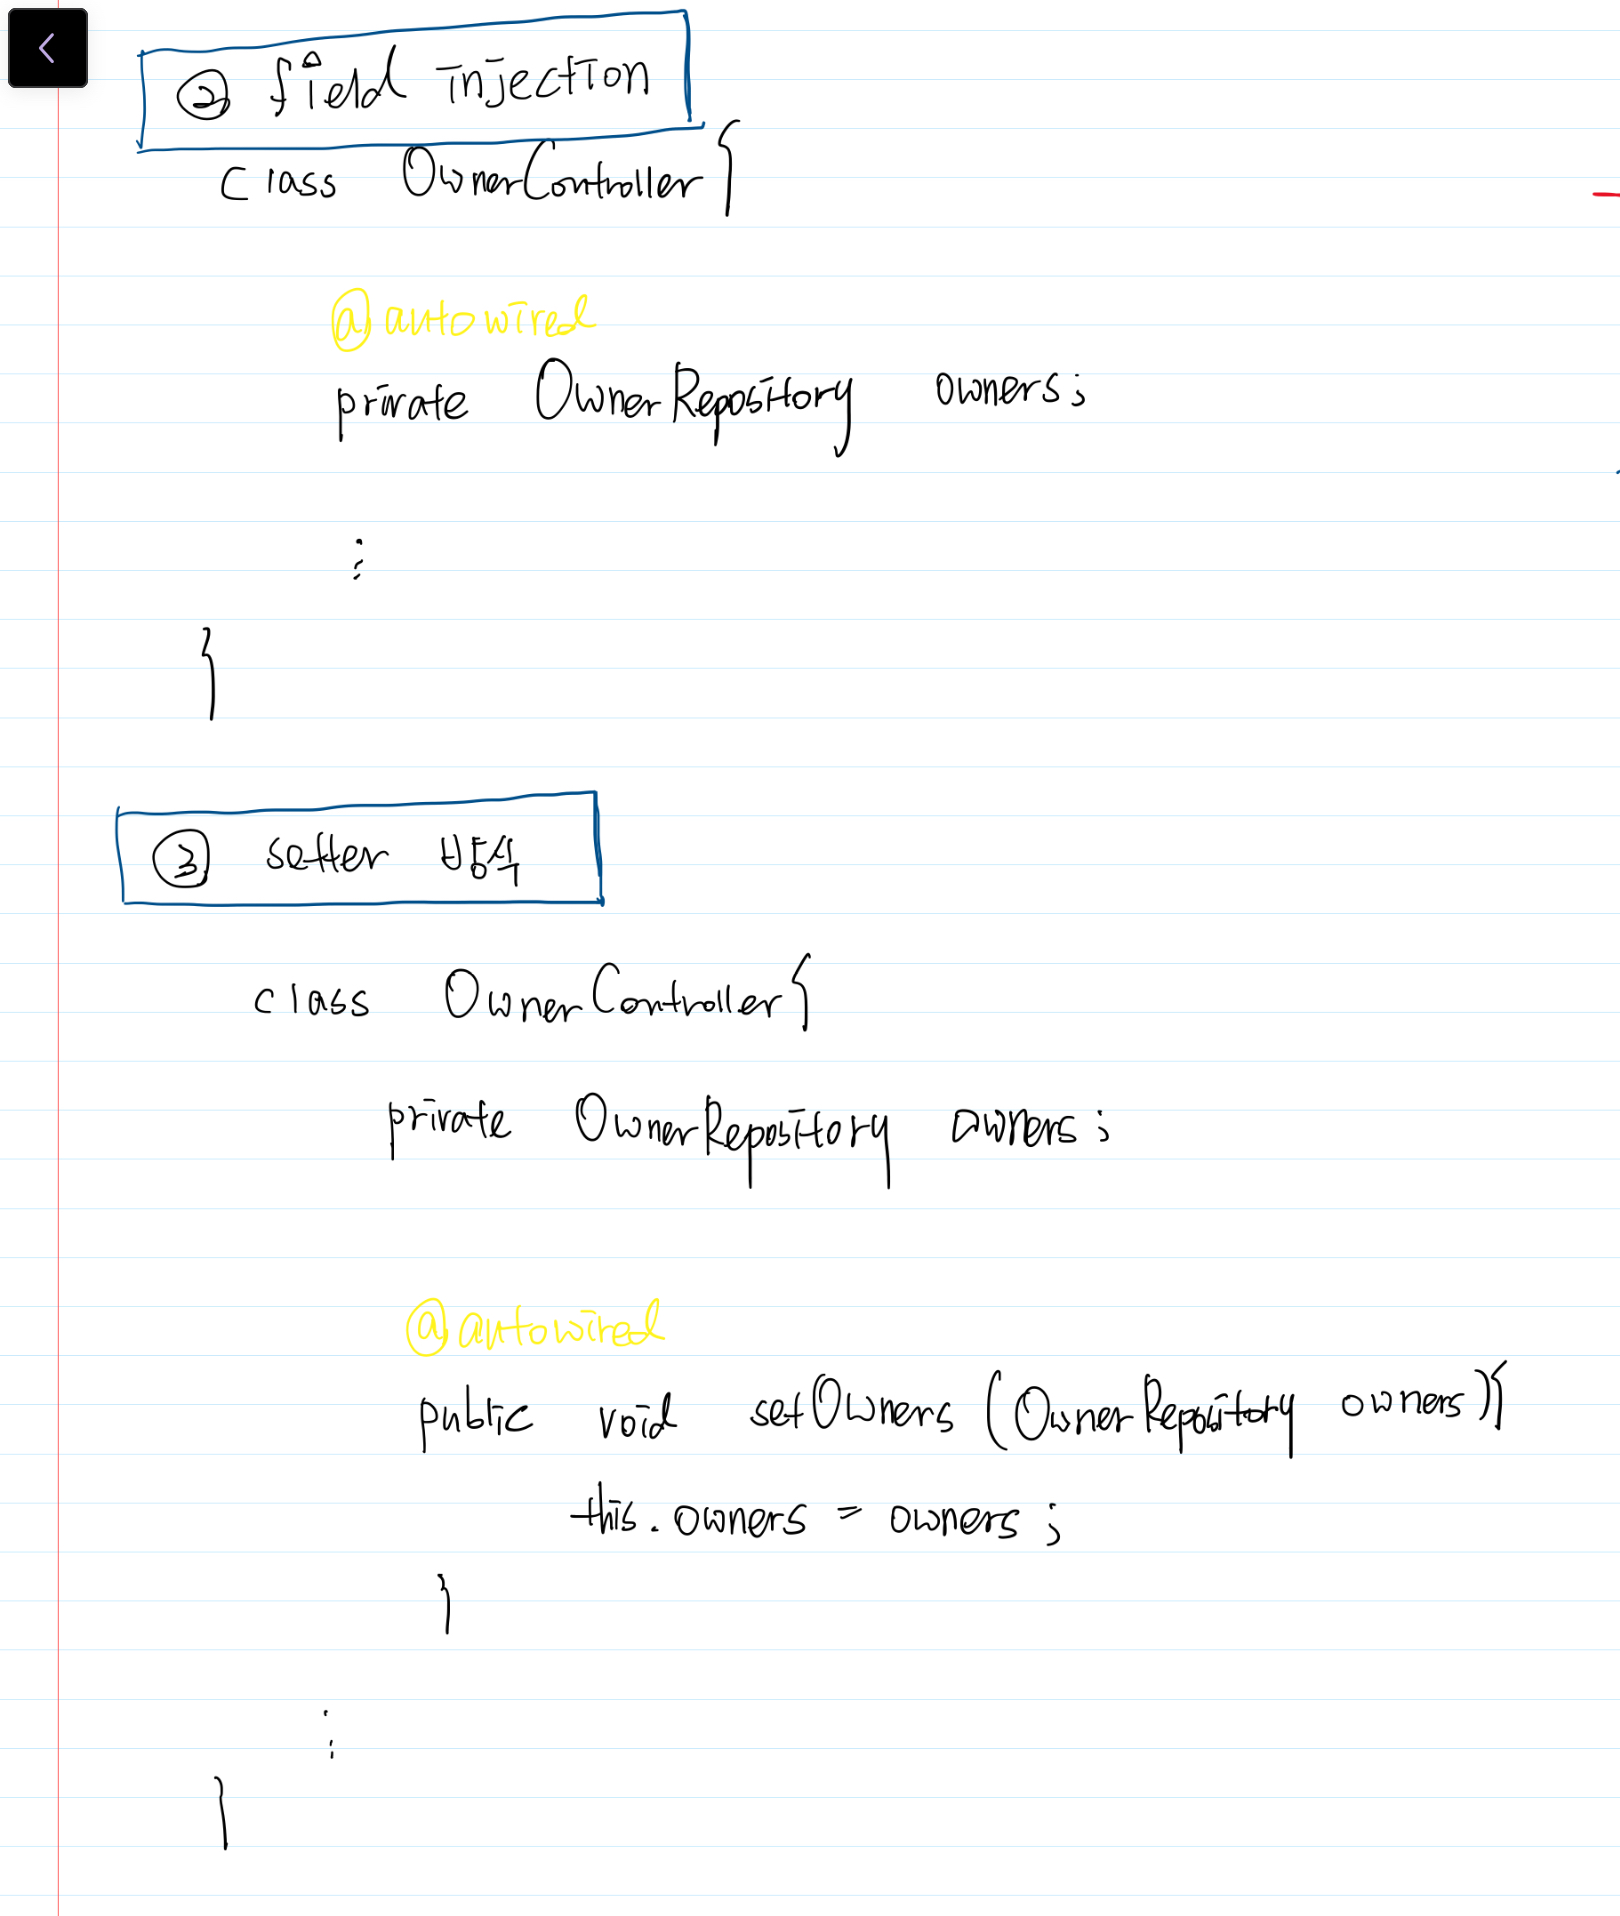 ② field injection
class OwnerController{
@autowired
private OwnerRepository owners;
⋮
}
③ setter 방식
class OwnerController{
private OwnerRepository owners;
@autowired
public void setOwners (OwnerRepository owners){
this.owners = owners;
}
⋮
}